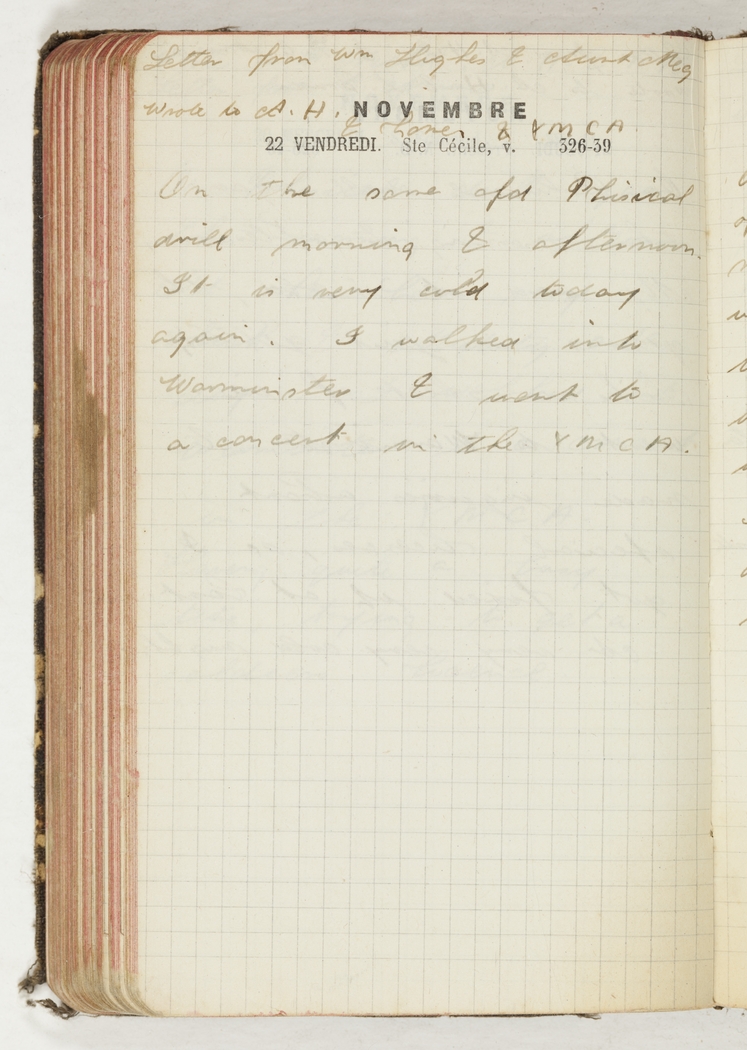 Letter from Wm Hughes & Aunt Meg
Wrote to A. H. NOVEMBRE
& & YMCA
22 VENDREDI. Ste Cécile, v. 326-39
On the same ofd Phisical
drill morning & afternoon.
It is very cold today
again. I walked into
Warminster & went to
a concert in the YMCA.